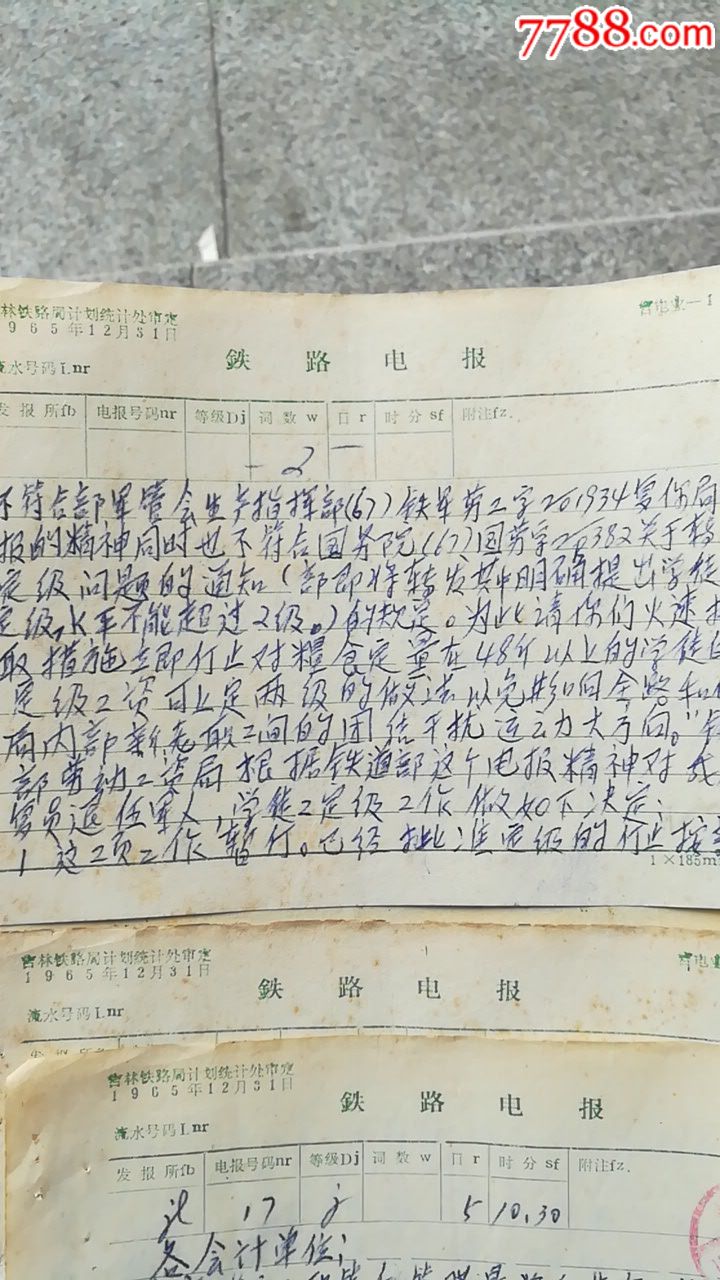 7788.com
林铁路局计划统计处审定
965年12月31日
吉电业-1
流水号码I.nr
鉄路电报
发报所fb 电报号码nr 等级Dj 词数w 日r 时分sf 附注fz.
-2-
不符合部军管会生产指挥部(67)铁军劳工字201934复你局
报的精神同时也不符合国务院(67)国劳字20382关于转
定级问题的通知(部即将转发其中明确提出学徒
定级,水平不能超过2级。)的规定。为此请你们火速
取措施立即停止对粮食定量在48斤以上的学徒
定级工资可上定两级的做法以免影响全路和
局内部新老职工间的团结干扰运动大方向。"
部劳动工资局根据铁道部这个电报精神对
复员退伍军人,学徒工定级工作做如下决定:
1 这2项工作暂停。已经批准定级的停止按
1×185m
吉林铁路局计划统计处审定
1965年12月31日
吉电业
鉄路电报
流水号码I.nr
吉林铁路局计划统计处审定
1965年12月31日
鉄路电报
流水号码I.nr
发报所fb 电报号码nr 等级Dj 词数w 日r 时分sf 附注fz.
jl 17 j 5 10.30
各会计单位: